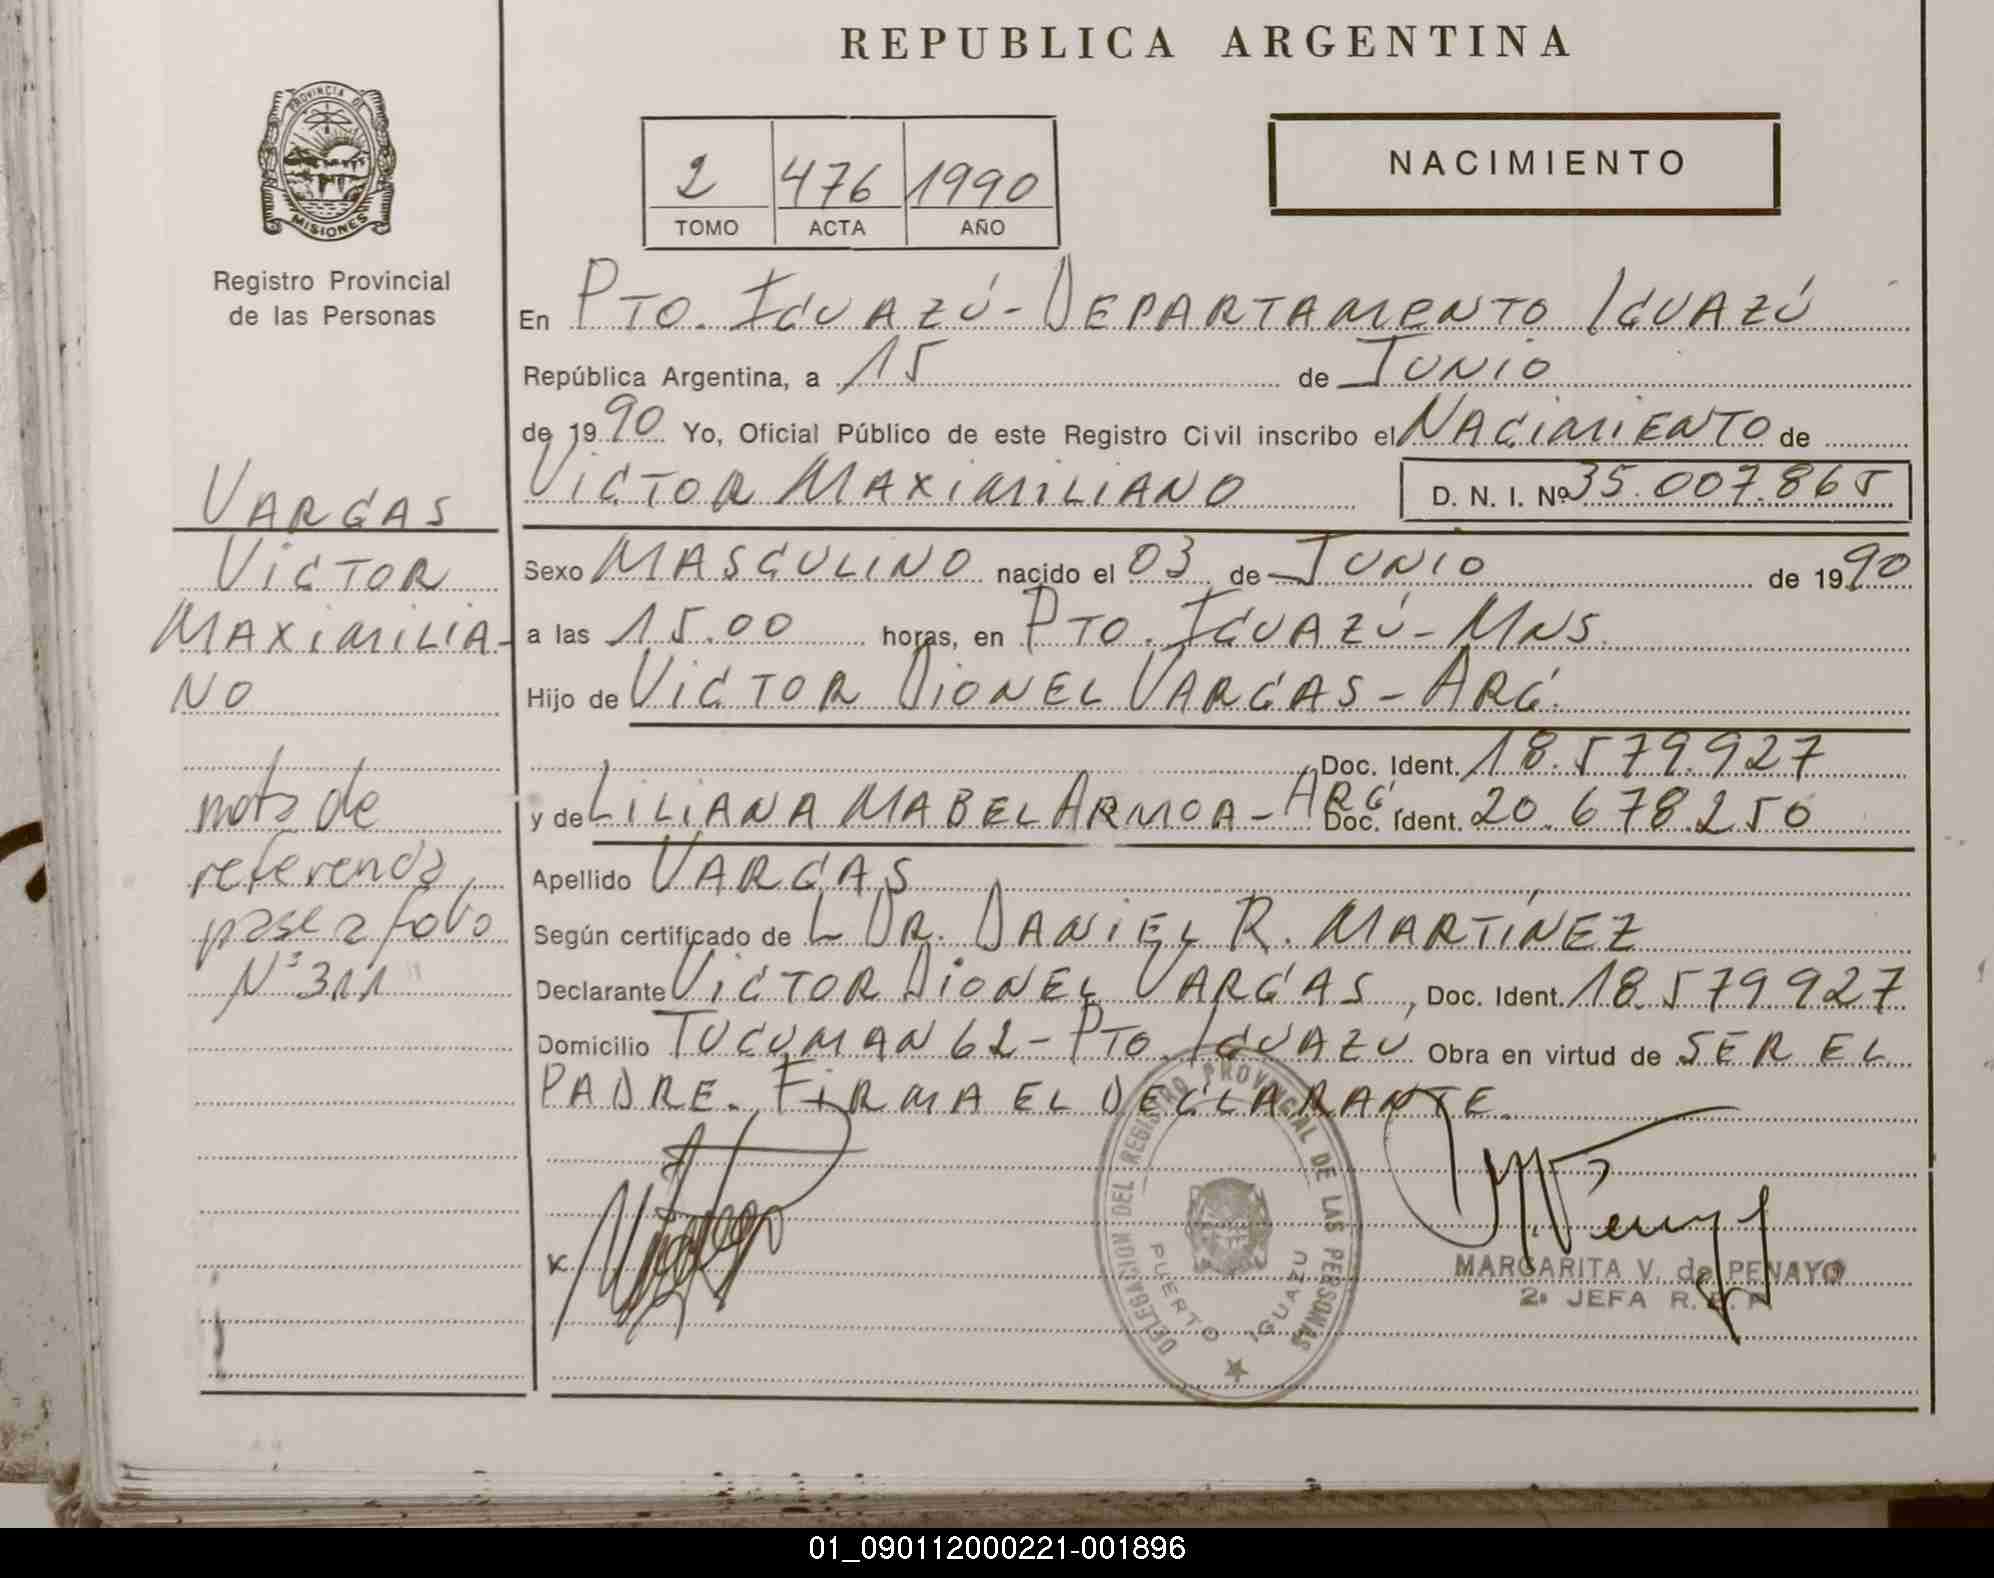 REPUBLICA ARGENTINA
PROVINCIA DE
MISIONES
Registro Provincial
de las Personas
2 476 1990
TOMO ACTA AÑO
NACIMIENTO
En PTO. IGUAZÚ - DEPARTAMENTO IGUAZÚ
República Argentina, a 15 de JUNIO
de 1990 Yo, Oficial Público de este Registro Civil inscribo el NACIMIENTO de
VICTOR MAXIMILIANO D. N. I. Nº 35.007.865
Sexo MASCULINO nacido el 03 de JUNIO de 1990
a las 15.00 horas, en PTO. IGUAZÚ - MNS.
Hijo de VICTOR DIONEL VARGAS - ARG.
Doc. Ident. 18.579.927
y de LILIANA MABEL ARMOA - ARG Doc. Ident. 20.678.250
Apellido VARGAS
Según certificado de L DR. DANIEL R. MARTÍNEZ
Declarante VICTOR DIONEL VARGAS, Doc. Ident. 18.579927
Domicilio TUCUMAN 62 - PTO. IGUAZU Obra en virtud de SER EL
PADRE. FIRMA EL DECLARANTE.
VARGAS
VICTOR
MAXIMILIA-
NO
nota de
referencia
pase a folio
Nº 311
DELEGACION DEL REGISTRO PROVINCIAL DE LAS PERSONAS
PUERTO IGUAZU
MARGARITA V. de PENAYO
2a JEFA R. P. P.
01_090112000221-001896